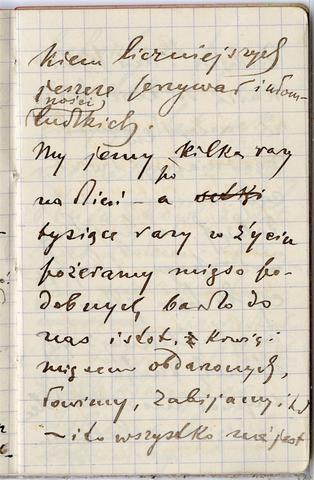 kiem liczniejszych
jeszcze porywań i ułom-
ności
ludzkich.
My jemy kilka razy
na dzień – a po setki
tysiące razy w życiu
pożeramy mięso po-
dobnych bardzo do
nas istot, z krwią i
mięsem obdarzonych,
łowimy, zabijamy i t.d
– i to wszystko nie jest